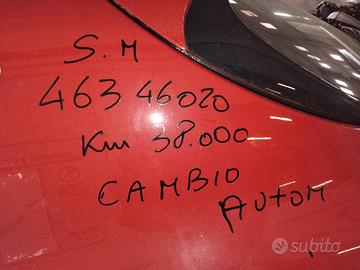 S.M
463 46020
Km 38.000
CAMBIO
AUTOM
subito